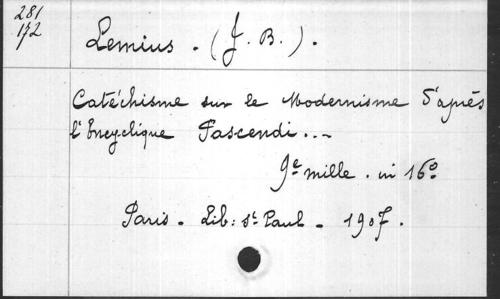 281
172
Lemius . (J. B.) .
Catéchisme sur le Modernisme d'après
l'Encyclique Pascendi...
9e mille . in 16o
Paris . Lib: St Paul . 1907.